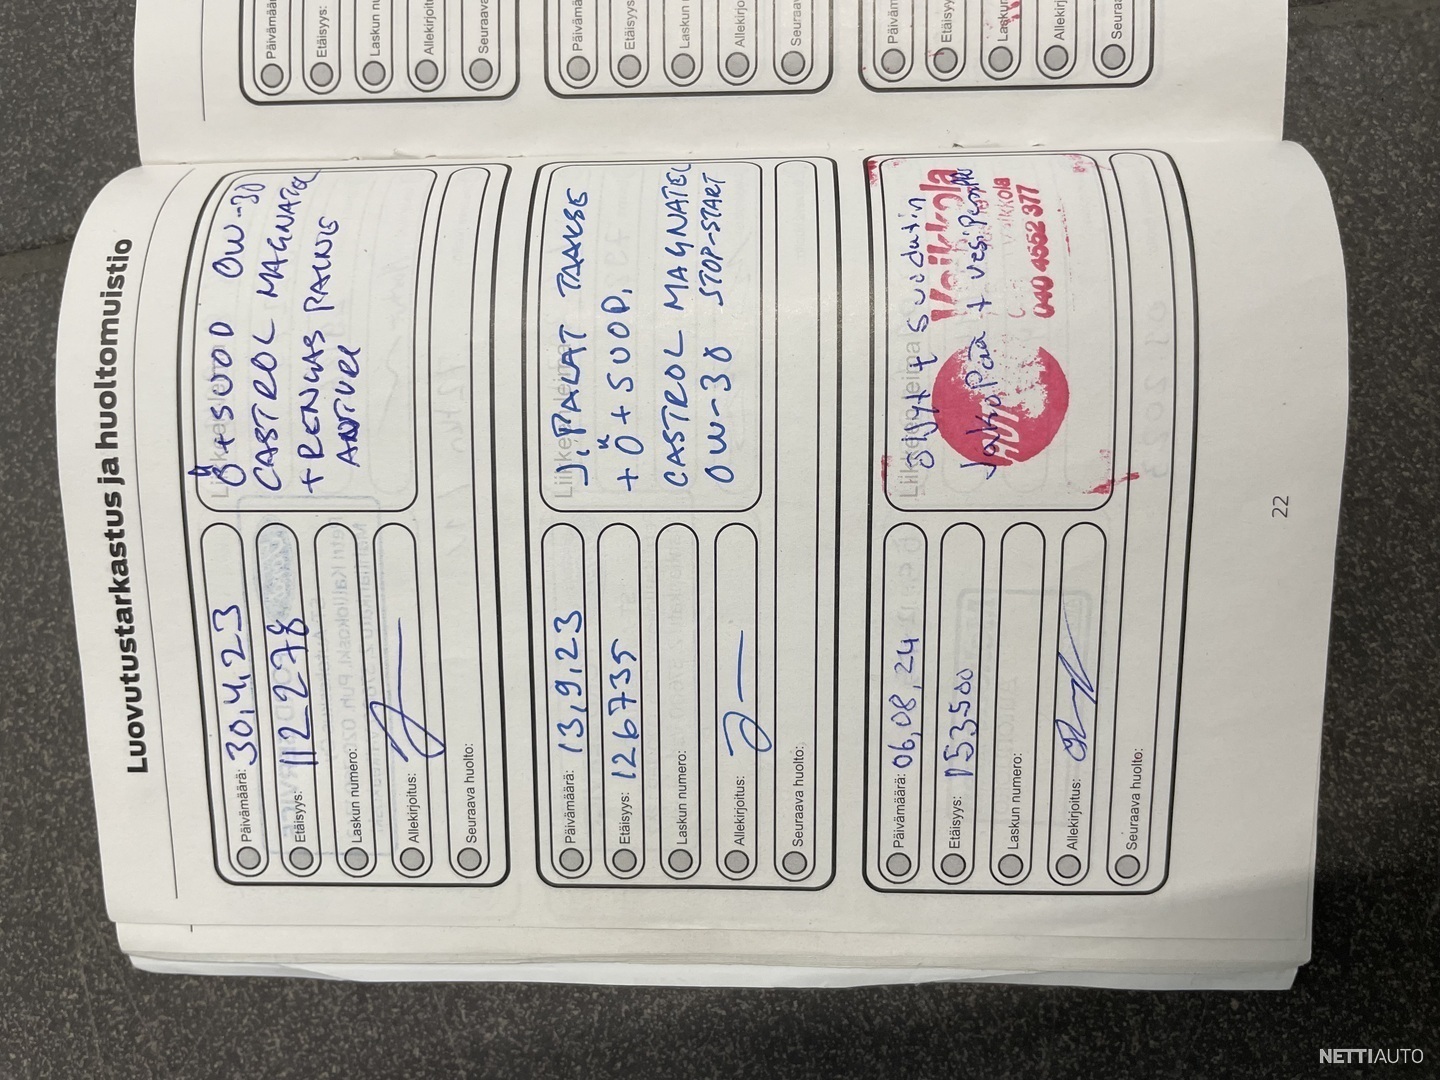 Päivämäärä
Etäisyys:
Laskun nu
Allekirjoit
Seuraava
Päivämäär
Etäisyys
Laskun
Allekir
Seurav
Päiväm
Etäisyys
Laskun
Allekirjo
Seuraa
Luovutustarkastus ja huoltomuistio
Päivämäärä: 30.4.23
Etäisyys: 112278
Laskun numero:
Allekirjoitus:
Seuraava huolto:
Ö+SUOD 0W-30
CASTROL MAGNATEC
+RENGAS PAINE
ANTURI
Päivämäärä: 13.9.23
Etäisyys: 126735
Laskun numero:
Allekirjoitus:
Seuraava huolto:
Liikkeen leima
J.PALAT TAAKSE
+Ö+SUOD.
CASTROL MAGNATEC
0W-30 STOP-START
Päivämäärä: 06.08.24
Etäisyys: 153500
Laskun numero:
Allekirjoitus:
Seuraava huolto:
Liikkeen leima
öljyt + suodatin
Veikkola
Jakopää + vesipumppu
Veikkola
040 4552 377
22
NETTIAUTO